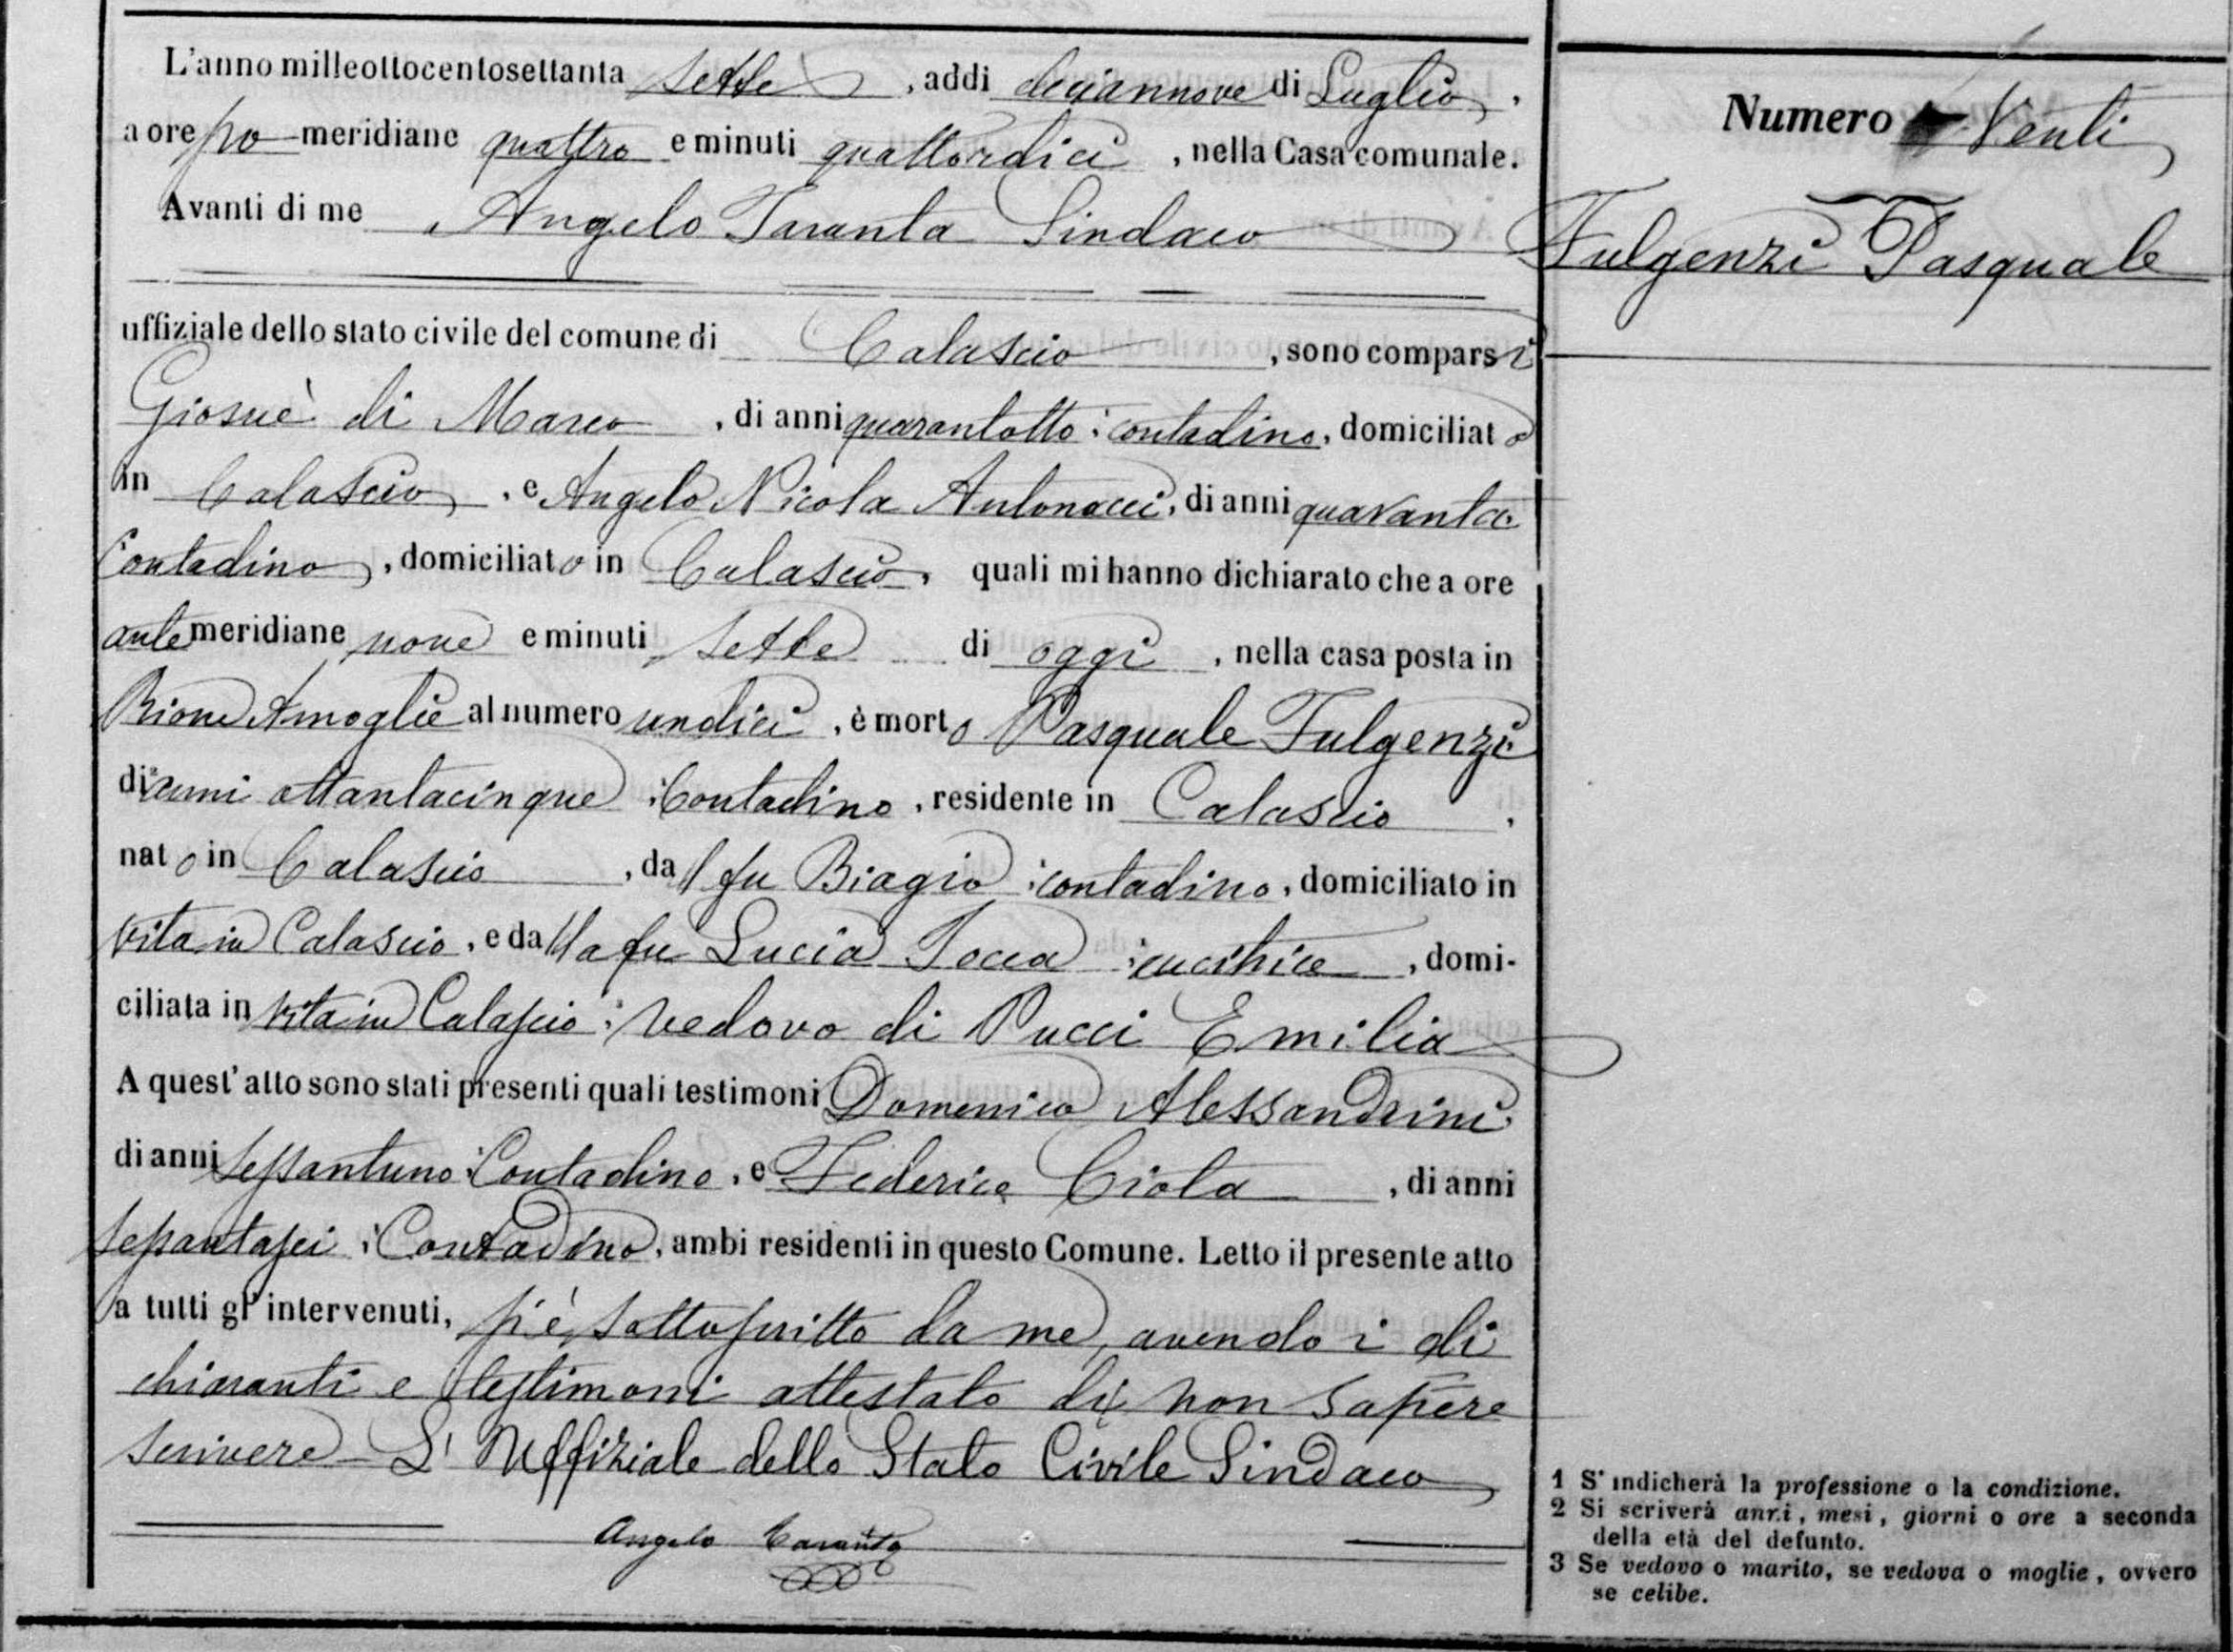 L'anno milleottocentosettanta sette, addi deciannove di Luglio,
a ore po meridiane quattro e minuti quattordici, nella Casa comunale.
Avanti di me Angelo Taranta Sindaco
uffiziale dello stato civile del comune di Calascio, sono comparsi
Giosuè di Marco, di anni quarantotto contadino, domiciliato
in Calascio, e Angelo Nicola Antonacci, di anni quaranta
Contadino, domiciliato in Calascio, quali mi hanno dichiarato che a ore
antemeridiane nove e minuti sette di oggi, nella casa posta in
Rione Amoglie al numero undici, è morto Pasquale Fulgenzi
di anni ottantacinque Contadino, residente in Calascio,
nato in Calascio, dal fu Biagio contadino, domiciliato in
vita in Calascio, e dalla fu Lucia Tocca cucitrice, domi-
ciliata in vita in Calascio vedovo di Pucci Emilia
A quest'atto sono stati presenti quali testimoni Domenico Alessandrini
di anni sessantuno Contadino, e Federico Ciola, di anni
sessantasei Contadino, ambi residenti in questo Comune. Letto il presente atto
a tutti gl'intervenuti, si è sottoscritto da me, avendo i di
chiaranti e testimoni attestato di non sapere
scrivere - L'Uffiziale dello Stato Civile Sindaco
Angelo Taranta
Numero Venti
Fulgenzi Pasquale
1 S'indicherà la professione o la condizione.
2 Si scriverà anni, mesi, giorni o ore a seconda
della età del defunto.
3 Se vedovo o marito, se vedova o moglie, ovvero
se celibe.